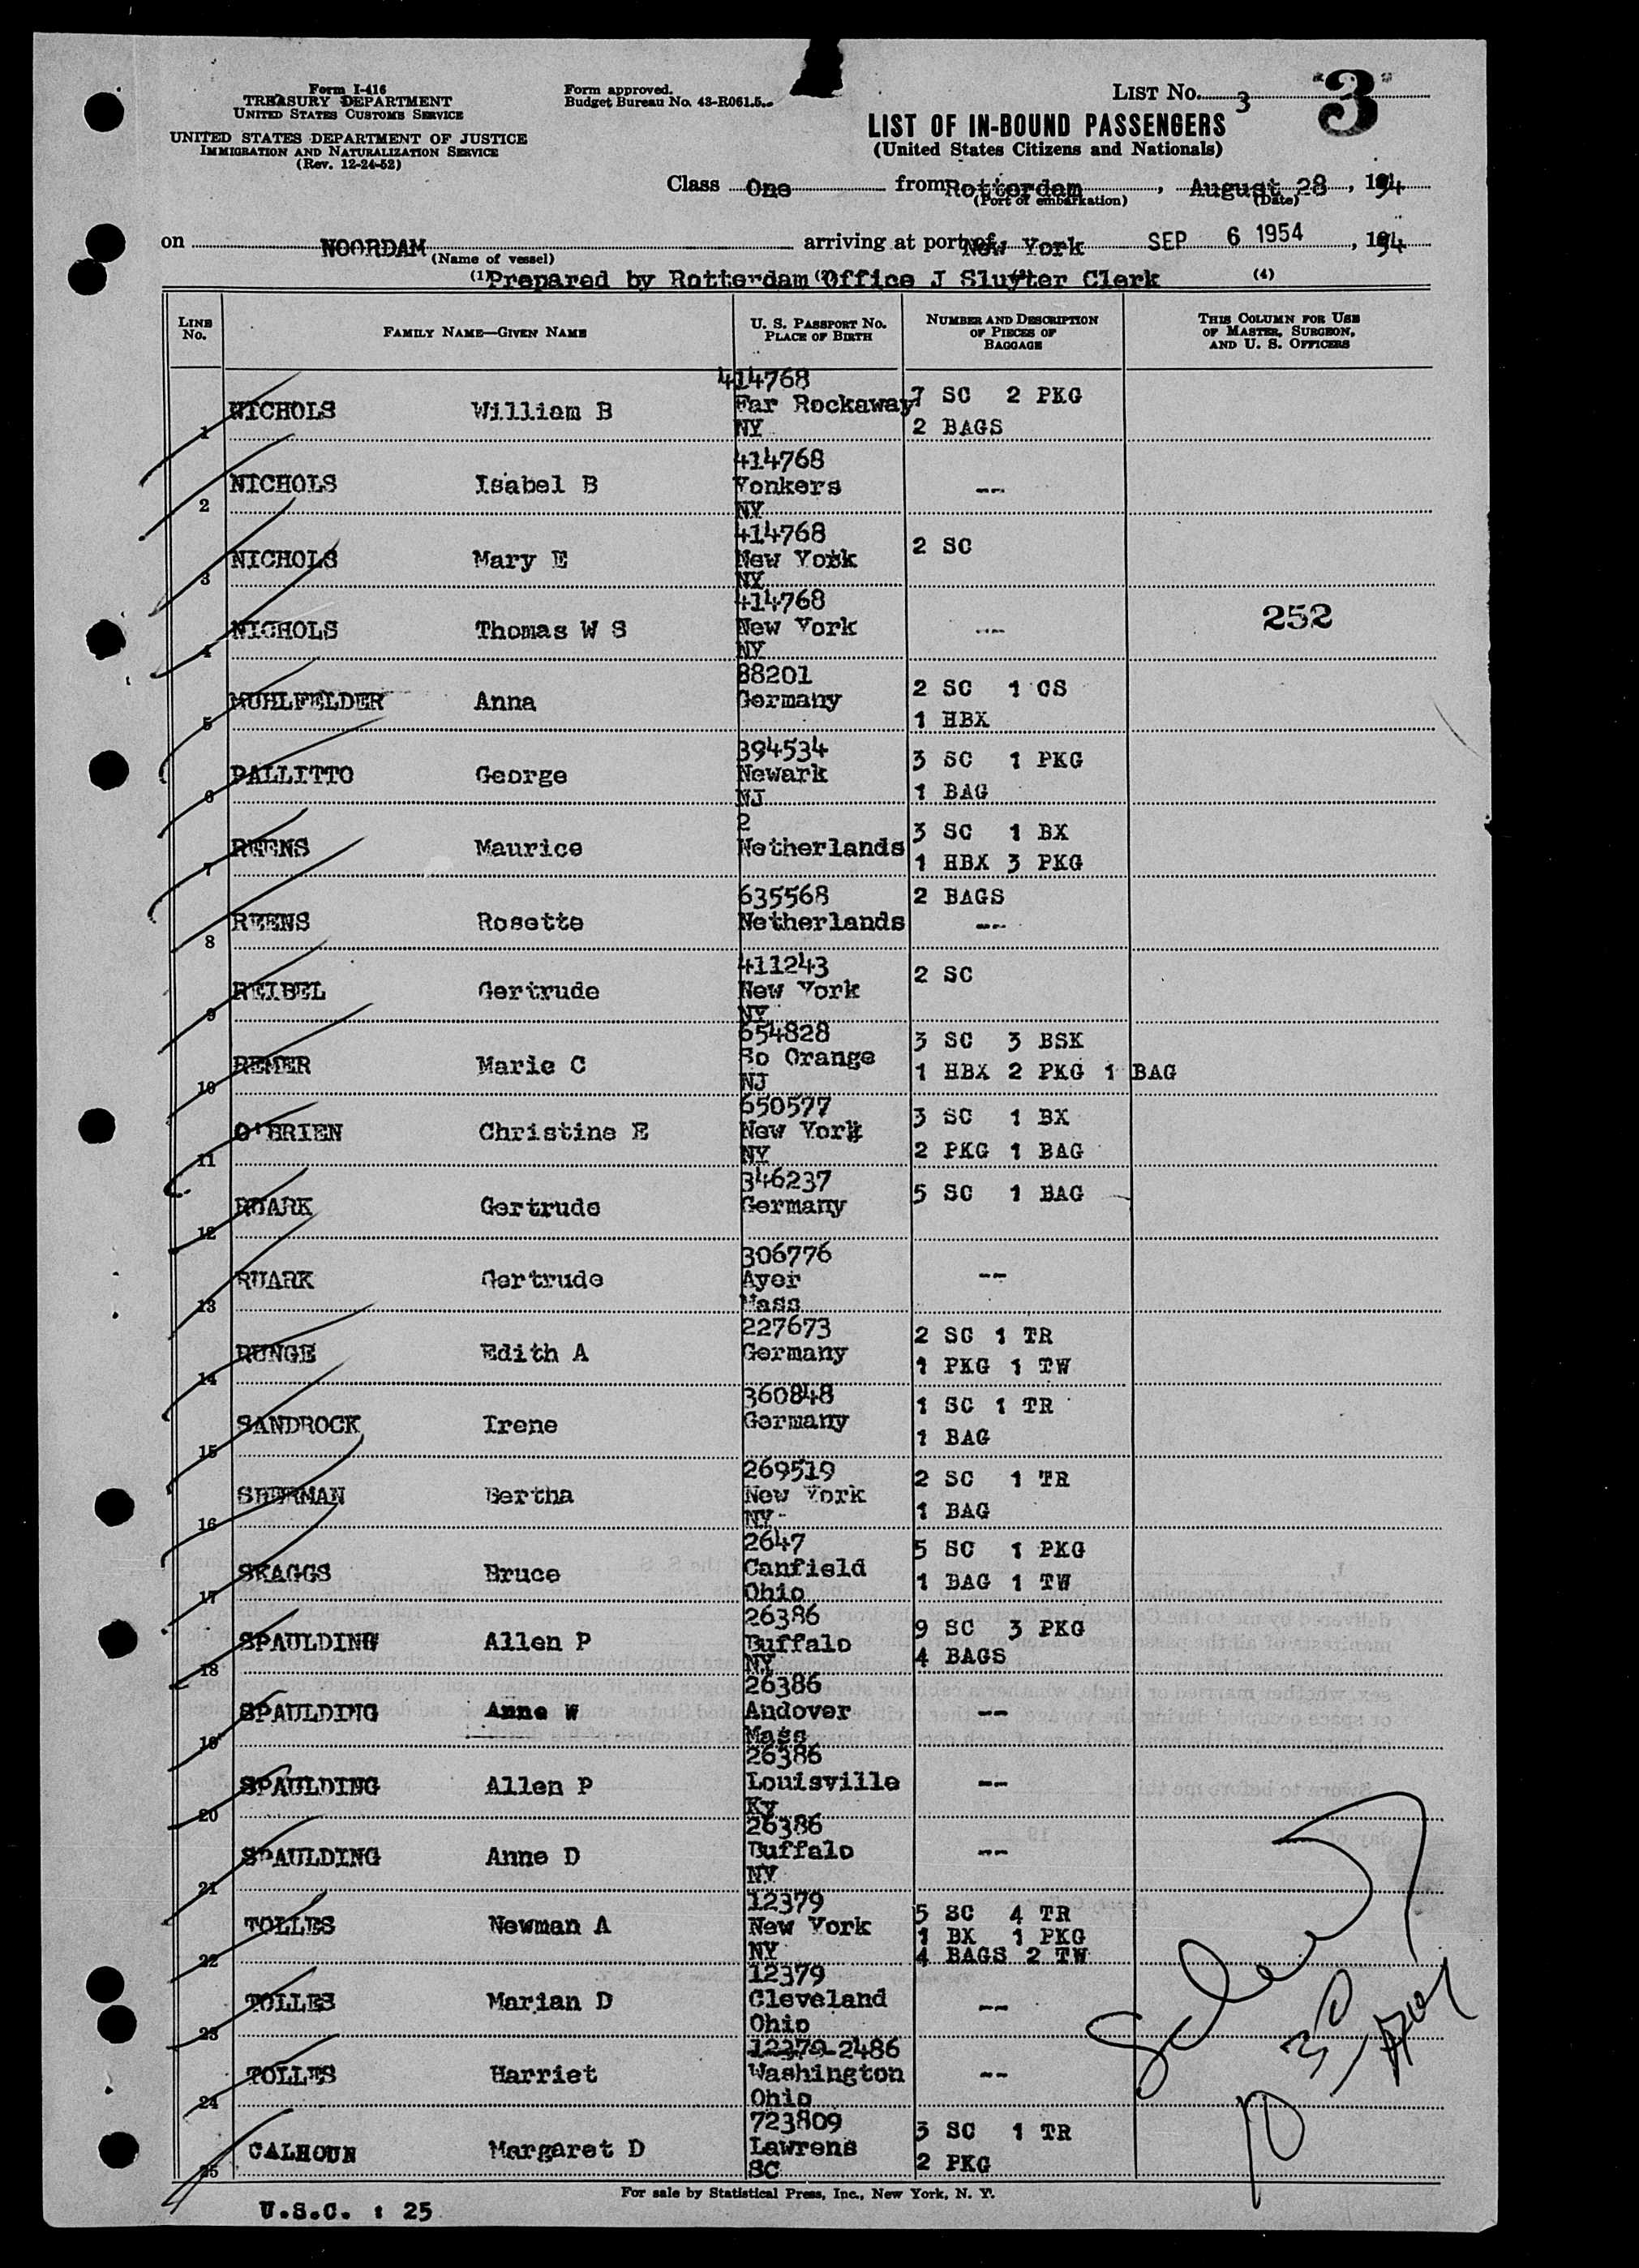 Form I-416
TREASURY DEPARTMENT
UNITED STATES CUSTOMS SERVICE
UNITED STATES DEPARTMENT OF JUSTICE
IMMIGRATION AND NATURALIZATION SERVICE
(Rev. 12-24-52)
Form approved.
Budget Bureau No. 43-R061.5.
LIST No. 3
3
LIST OF IN-BOUND PASSENGERS
(United States Citizens and Nationals)
Class One from Rotterdam, August 28, 1954
(Port of embarkation) (Date)
on NOORDAM arriving at port of New York SEP 6 1954, 1954
(Name of vessel)
(1) Prepared by Rotterdam (2) Office J Sluyter Clerk (4)
LINE No. FAMILY NAME—GIVEN NAME U. S. PASSPORT No. PLACE OF BIRTH NUMBER AND DESCRIPTION OF PIECES OF BAGGAGE THIS COLUMN FOR USE OF MASTER, SURGEON, AND U. S. OFFICERS
1 NICHOLS William B 414768 Far Rockaway NY 7 SC 2 PKG 2 BAGS
2 NICHOLS Isabel B 414768 Yonkers NY --
3 NICHOLS Mary E 414768 New York NY 2 SC
4 NICHOLS Thomas W S 414768 New York NY -- 252
5 MUHLFELDER Anna 88201 Germany 2 SC 1 CS 1 HBX
6 PALLITTO George 394534 Newark NJ 3 SC 1 PKG 1 BAG
7 REENS Maurice 2 Netherlands 3 SC 1 BX 1 HBX 3 PKG
8 REENS Rosette 635568 Netherlands 2 BAGS --
9 REIBEL Gertrude 411243 New York NY 2 SC
10 REMER Marie C 654828 So Orange NJ 3 SC 3 BSK 1 HBX 2 PKG 1 BAG
11 O'BRIEN Christine E 650577 New York NY 3 SC 1 BX 2 PKG 1 BAG
12 RUARK Gertrude 346237 Germany 5 SC 1 BAG
13 RUARK Gertrude 306776 Ayer Mass --
14 RUNGE Edith A 227673 Germany 2 SC 1 TR 1 PKG 1 TW
15 SANDROCK Irene 360848 Germany 1 SC 1 TR 1 BAG
16 SHERMAN Bertha 269519 New York NY 2 SC 1 TR 1 BAG
17 SKAGGS Bruce 2647 Canfield Ohio 5 SC 1 PKG 1 BAG 1 TW
18 SPAULDING Allen P 26386 Buffalo NY 9 SC 3 PKG 4 BAGS
19 SPAULDING Anne W 26386 Andover Mass --
20 SPAULDING Allen P 26386 Louisville Ky --
21 SPAULDING Anne D 26386 Buffalo NY --
22 TOLLES Newman A 12379 New York NY 5 SC 4 TR 1 BX 1 PKG 4 BAGS 2 TW
23 TOLLES Marian D 12379 Cleveland Ohio --
24 TOLLES Harriet 12379 2486 Washington Ohio --
25 CALHOUN Margaret D 723809 Lawrens SC 3 SC 1 TR 2 PKG
For sale by Statistical Press, Inc., New York, N. Y.
U.S.C. : 25